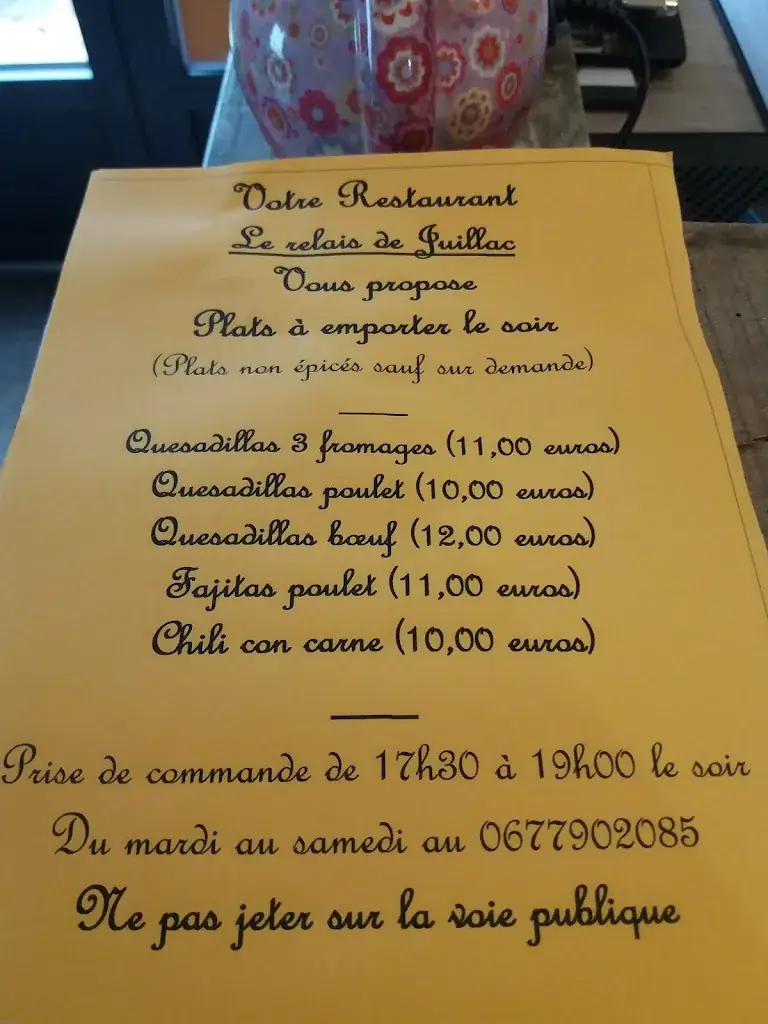 Votre Restaurant
Le relais de Juillac
Vous propose
Plats à emporter le soir
(Plats non épicés sauf sur demande)
Quesadillas 3 fromages (11,00 euros)
Quesadillas poulet (10,00 euros)
Quesadillas bœuf (12,00 euros)
Fajitas poulet (11,00 euros)
Chili con carne (10,00 euros)
Prise de commande de 17h30 à 19h00 le soir
Du mardi au samedi au 0677902085
Ne pas jeter sur la voie publique